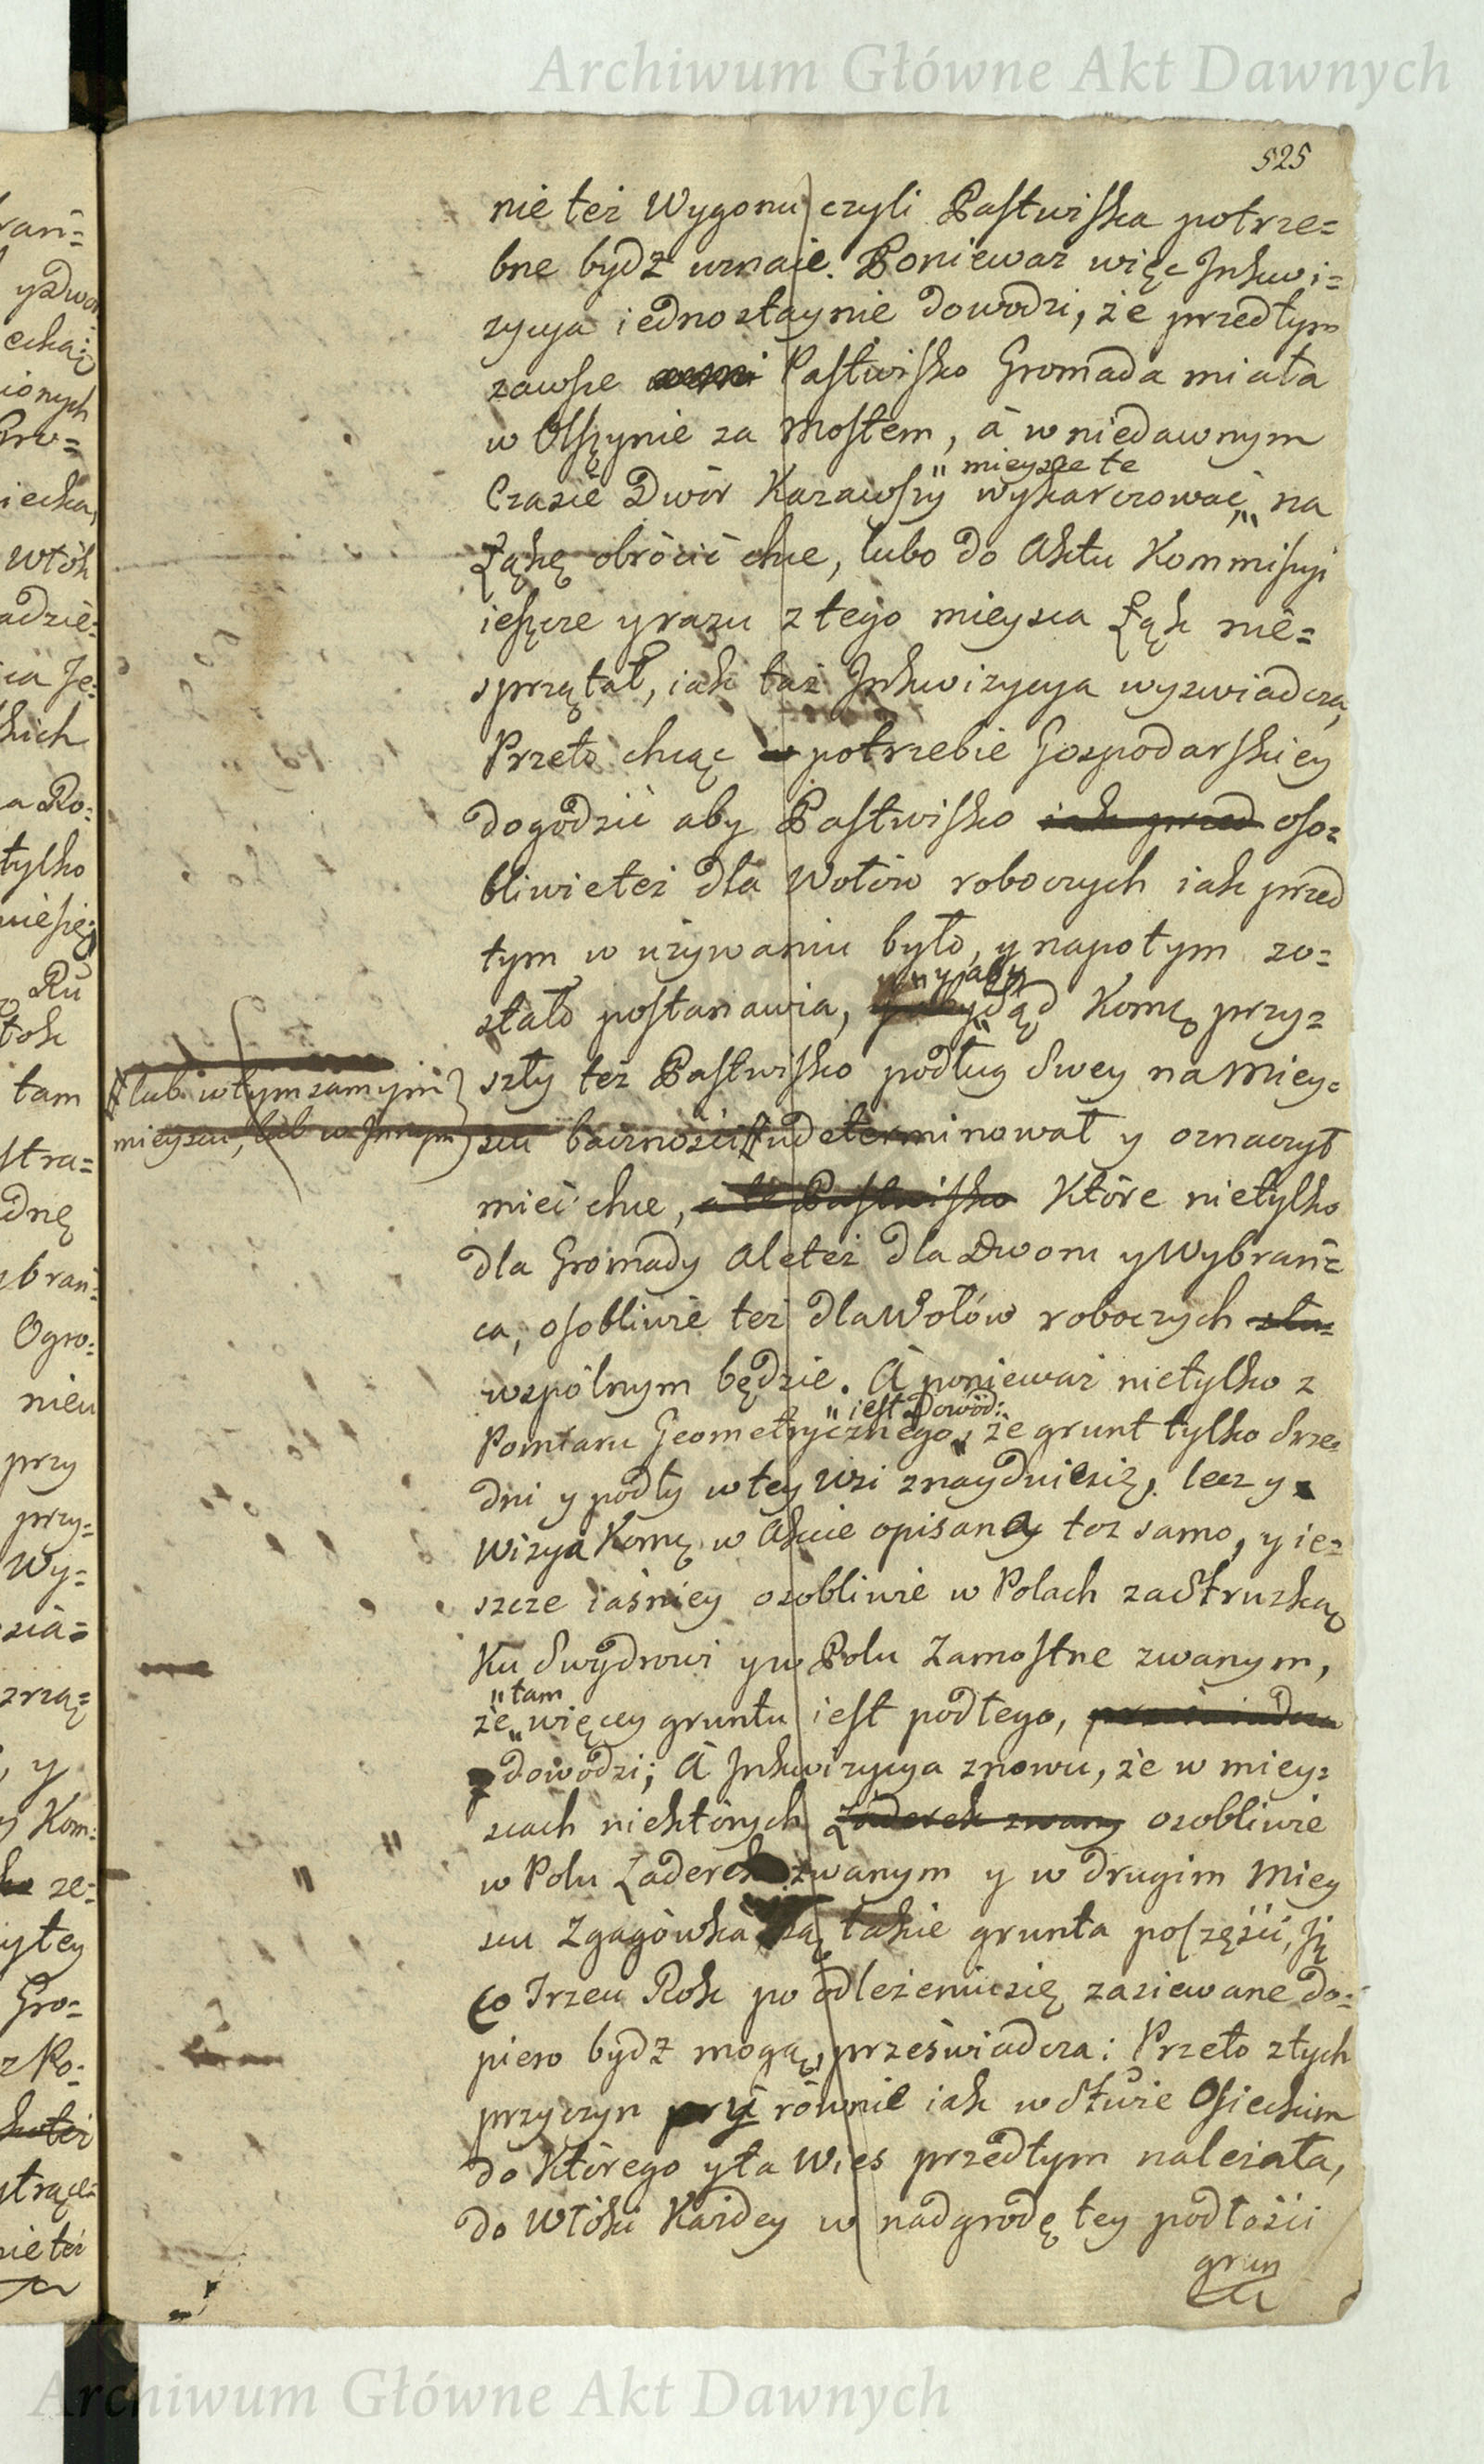 Archiwum Główne Akt Dawnych
525
nie też Wygonu czyli Pastwiska potrze=
bne bydź uznaie. Poniewaz więc Inkwi=
zycya iednostaynie dowodzi, że przedtym
zawsze Pastwisko Gromada miała
w Olszynie za Mostem, à w niedawnym
" mieysce te
Czasie Dwór Kazawszy wykarczować,, na
Łąkę obrócić chce, lubo do Aktu Kommisyi
ieszcze y razu z tego mieysca Łąk nie=
sprzątał, iak taż Inkwizycya wyswiadcza,
Przeto chcąc w potrzebie Gospodarskiey
dogodzić aby Pastwisko iak przed oso=
bliwie też dla Wołów roboczych iak przed
tym w używaniu było, y napotym zo=
" y aby
stało postanawia, Sąd Komę przy=
szły też Pastwisko podług Swey na Miey=
# lub w tym samym
mieyscu, lub w Innym
scu bacznosci # udeterminował y oznaczył
mieć chce, a te Pastwisko Które nietylko
dla Gromady ale też dla Dworu y Wybrań=
ca, osobliwie też dla Wołów roboczych słu=
wspólnym będzie. A poniewaz nietylko z
" iest Dowód:
Pomiaru Geometrycznego, że grunt tylko Srze=
dni y podły w tey Wsi znayduiesię, lecz y
Wizya Komę w Akcie opisana toż samo, y ie=
szcze iaśniey osobliwie w Polach za Struzką
Ku Swydrowi y w Polu Zamostne zwanym,
" tam
że " więcey gruntu iest podłego, przeświadcza
dowodzi; A Inkwizycya znowu, że w miey=
scach niektórych Zaderek zwany osobliwie
w Polu Zaderek zwanym y w drugim Miey
scu Zgagówka są takie grunta po części, Iż
co Trzeci Rok po odleżeniu się zasiewane do=
piero bydź mogą, przeświadcza: Przeto z tych
przyczyn równie iak w Stwie Osieckim
do Którego y ta Wies przedtym należała,
do Włóki Każdey w nadgrodę tey podłości
grun
Archiwum Główne Akt Dawnych